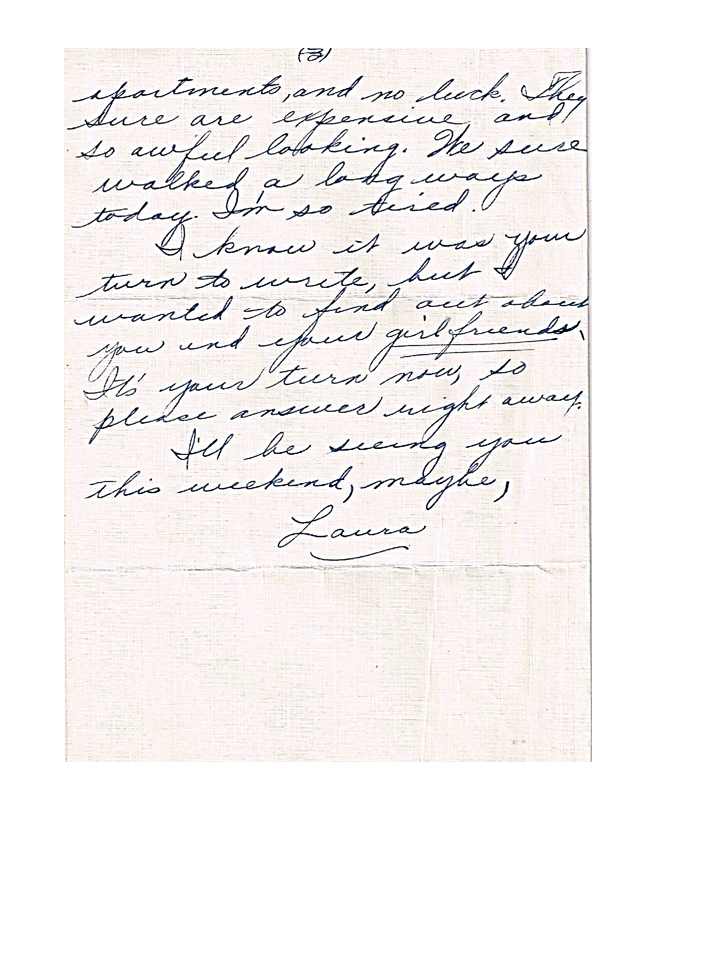 (3)
apartments, and no luck. They
sure are expensive and
so awful looking. We sure
walked a long ways
today. I'm so tired.
I know it was your
turn to write, but I
wanted to find out about
you and your girlfriends.
It's your turn now, so
please answer right away.
I'll be seeing you
this weekend, maybe,
Laura